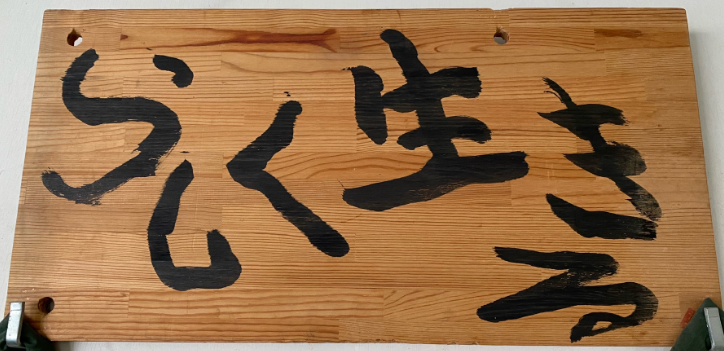 らしく生きる